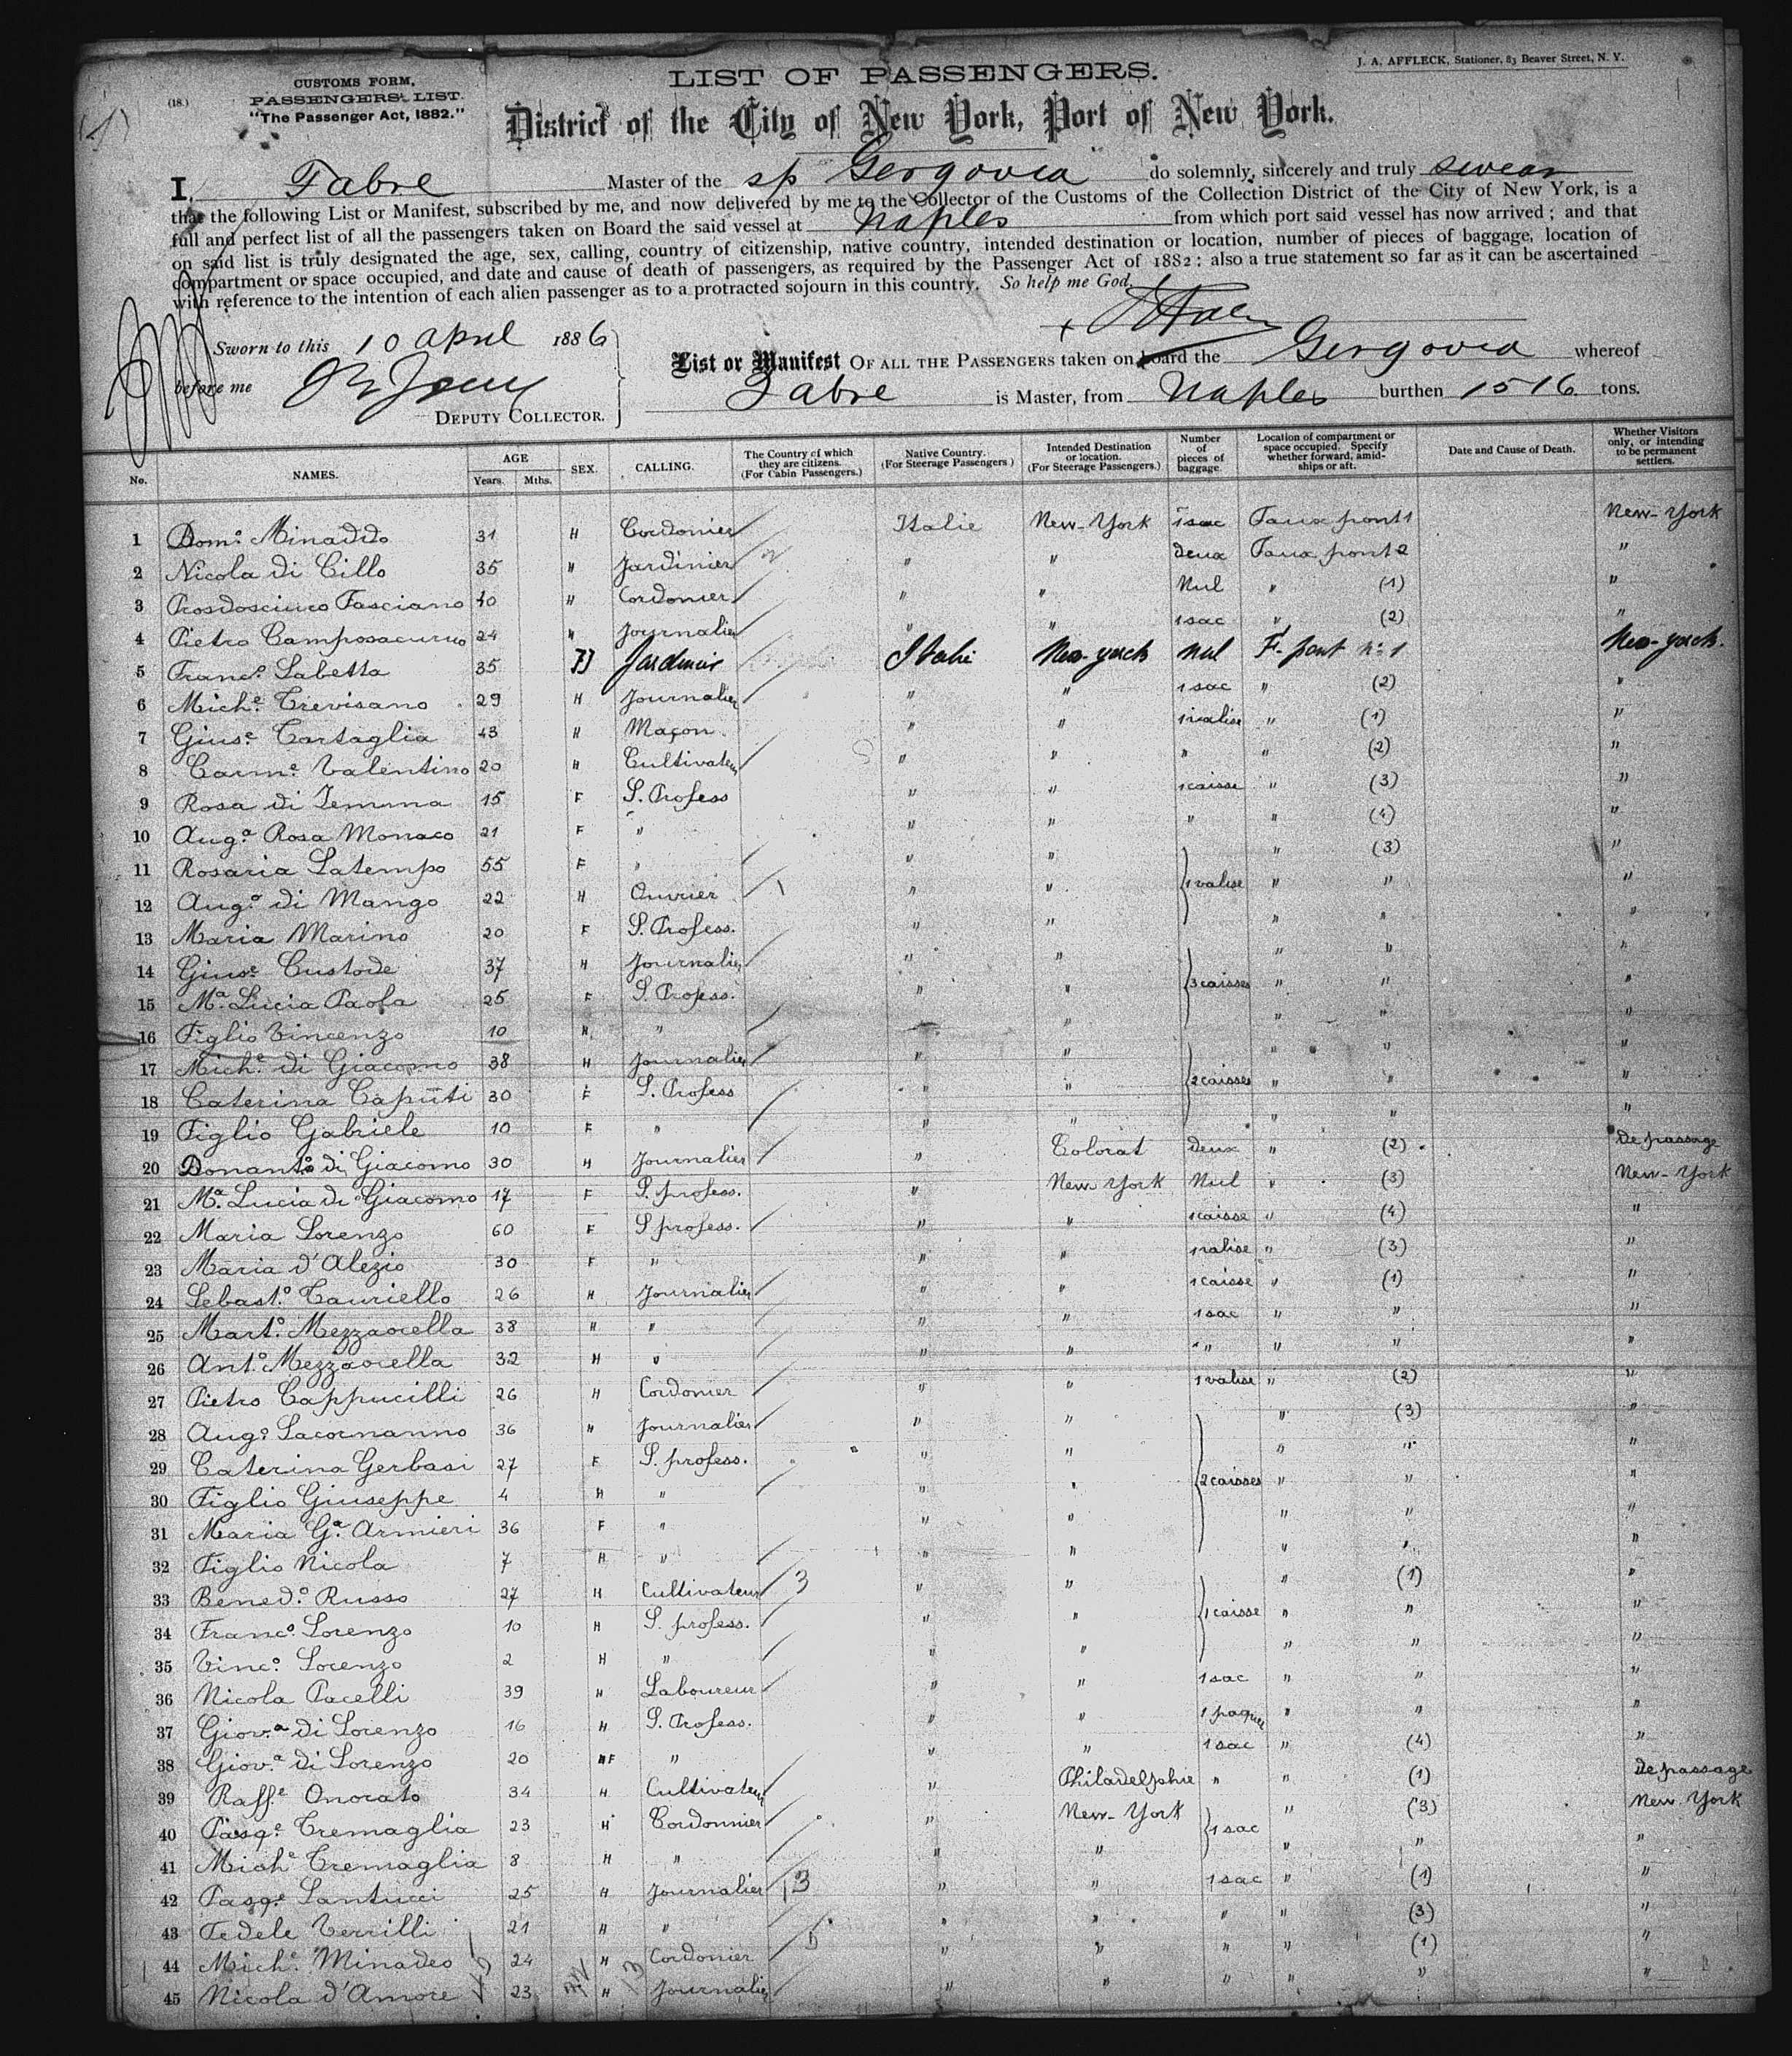 (18.)
CUSTOMS FORM,
PASSENGERS' LIST.
"The Passenger Act, 1882."
LIST OF PASSENGERS.
J. A. AFFLECK, Stationer, 83 Beaver Street, N. Y.
(1)
District of the City of New York, Port of New York.
I, Fabre Master of the sp Gergovia do solemnly, sincerely and truly swear
that the following List or Manifest, subscribed by me, and now delivered by me to the Collector of the Customs of the Collection District of the City of New York, is a
full and perfect list of all the passengers taken on Board the said vessel at Naples from which port said vessel has now arrived; and that
on said list is truly designated the age, sex, calling, country of citizenship, native country, intended destination or location, number of pieces of baggage, location of
compartment or space occupied, and date and cause of death of passengers, as required by the Passenger Act of 1882: also a true statement so far as it can be ascertained
with reference to the intention of each alien passenger as to a protracted sojourn in this country. So help me God.
Sworn to this 10 april 1886
before me
DEPUTY COLLECTOR.
List or Manifest OF ALL THE PASSENGERS taken on board the Gergovia whereof
Fabre is Master, from Naples burthen 1516 tons.
No. NAMES. AGE Years. Mths. SEX. CALLING. The Country of which they are citizens. (For Cabin Passengers.) Native Country. (For Steerage Passengers) Intended Destination or location. (For Steerage Passengers.) Number of pieces of baggage. Location of compartment or space occupied. Specify whether forward, amidships or aft. Date and Cause of Death. Whether Visitors only, or intending to be permanent settlers.
1 Dom.o Minadido 31 H Cordonier Italie New-York 1 sac Faux pont 1 New-York
2 Nicola di Cillo 35 " Jardinier " " deux Faux pont 2 "
3 Prosdoscimo Fasciano 40 H Cordonier " " Nul " (1) "
4 Pietro 24 " Journalier " " 1 sac " (2) "
5 Franc.o Labetta 35 H Jardinier Italie New-york nul F. pont n. 1 New-york.
6 Mich.e Trevisano 29 H Journalier " " 1 sac " (2) "
7 Gius.e Tartaglia 43 H Maçon " " 1 valise " (1) "
8 Carm.e Valentino 20 H Cultivateur " " " " (2) "
9 Rosa di Jemma 15 F S. Profess " " 1 caisse " (3) "
10 Aug.a Rosa Monaco 21 F " " " " " (4) "
11 Rosaria Latempo 55 F " " " " (3) "
12 Aug.o di Mango 22 H Ouvrier " " 1 valise " " "
13 Maria Marino 20 F S. Profess. " " " " "
14 Gius.e Custode 37 H Journalier " " " " "
15 M.a Lucia Paola 25 F S. Profess. " " 3 caisses " " "
16 Figlio Vincenzo 10 H " " " " " "
17 Mich.e di Giacomo 38 H Journalier " " " " "
18 Caterina Caputi 30 F S. Profess " " 2 caisses " " "
19 Figlio Gabriele 10 F " " " " " "
20 Donant.o di Giacomo 30 H Journalier " Colorat deux " (2) De passage
21 M.a Lucia di Giacomo 17 F S. profess. " New York Nul " (3) New-York
22 Maria Lorenzo 60 F S profess. " " 1 caisse " (4) "
23 Maria d'Alezio 30 F " " " 1 valise " (3) "
24 Sebast.o Tauriello 26 H Journalier " " 1 caisse " (1) "
25 Mart.o Mezzacella 38 H " " " 1 sac " " "
26 Ant.o Mezzacella 32 H " " " " " " "
27 Pietro Cappucilli 26 H Cordonier " " 1 valise " (2) "
28 Aug.o Lacormanno 36 " Journalier " " " (3) "
29 Caterina Gerbasi 27 F S. profess. " " " " "
30 Figlio Giuseppe 4 H " " " 2 caisses " " "
31 Maria G.a Armieri 36 F " " " " " "
32 Figlio Nicola 7 H " " " " " "
33 Bened.o Russo 27 H Cultivateur 3 " " " (1) "
34 Franc.o Lorenzo 10 H S. profess. " " 1 caisse " " "
35 Vinc.o Lorenzo 2 H " " " " " "
36 Nicola Pacelli 39 H Laboureur " " 1 sac " " "
37 Giov.a di Lorenzo 16 H S. Profess. " " 1 paquet " " "
38 Giov.a di Lorenzo 20 F " " " 1 sac " (4) "
39 Raff.e Onorato 34 H Cultivateur " Philadelphie " " (1) De passage
40 Pasq.e Tremaglia 23 H Cordonnier " New-York 1 sac " (3) New-York
41 Mich.e Tremaglia 8 H " " " " " "
42 Pasq.e Santucci 25 H Journalier 13 " " 1 sac " (1) "
43 Fedele Verrilli 21 H " " " " " (3) "
44 Mich.e Minadeo 24 H Cordonier " " " " (1) "
45 Nicola d'Amore 23 H Journalier " " " " " "